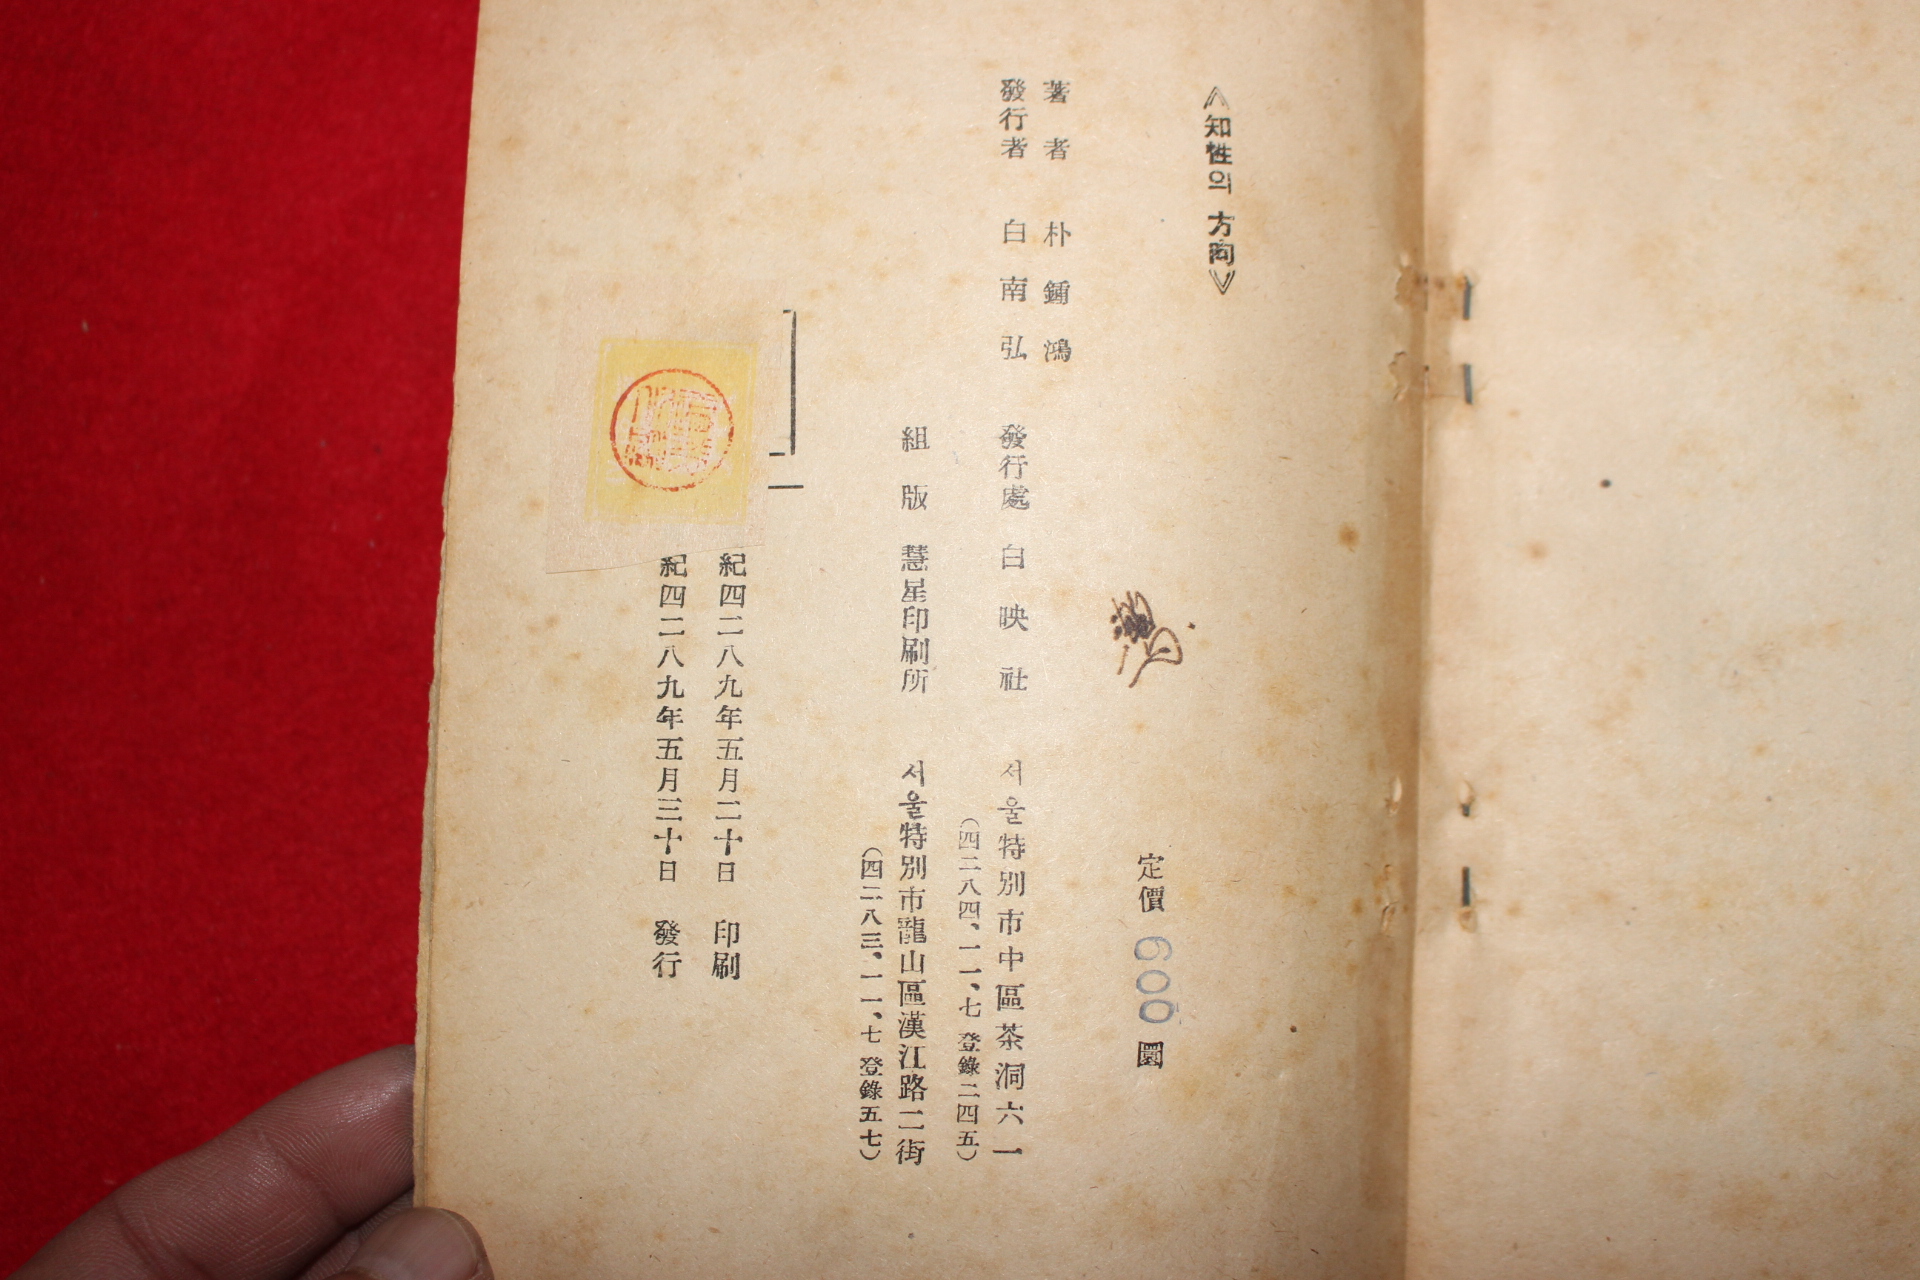 《知性의 方向》
定價 600 圜
著者 朴鍾鴻
發行者 白南弘 發行處 白映社 서울特別市中區茶洞六一
（四二八四、一一、七 登錄二四五）
組版 慧星印刷所 서울特別市龍山區漢江路二街
（四二八三、一一、七 登錄五七）
紀四二八九年五月二十日 印刷
紀四二八九年五月三十日 發行